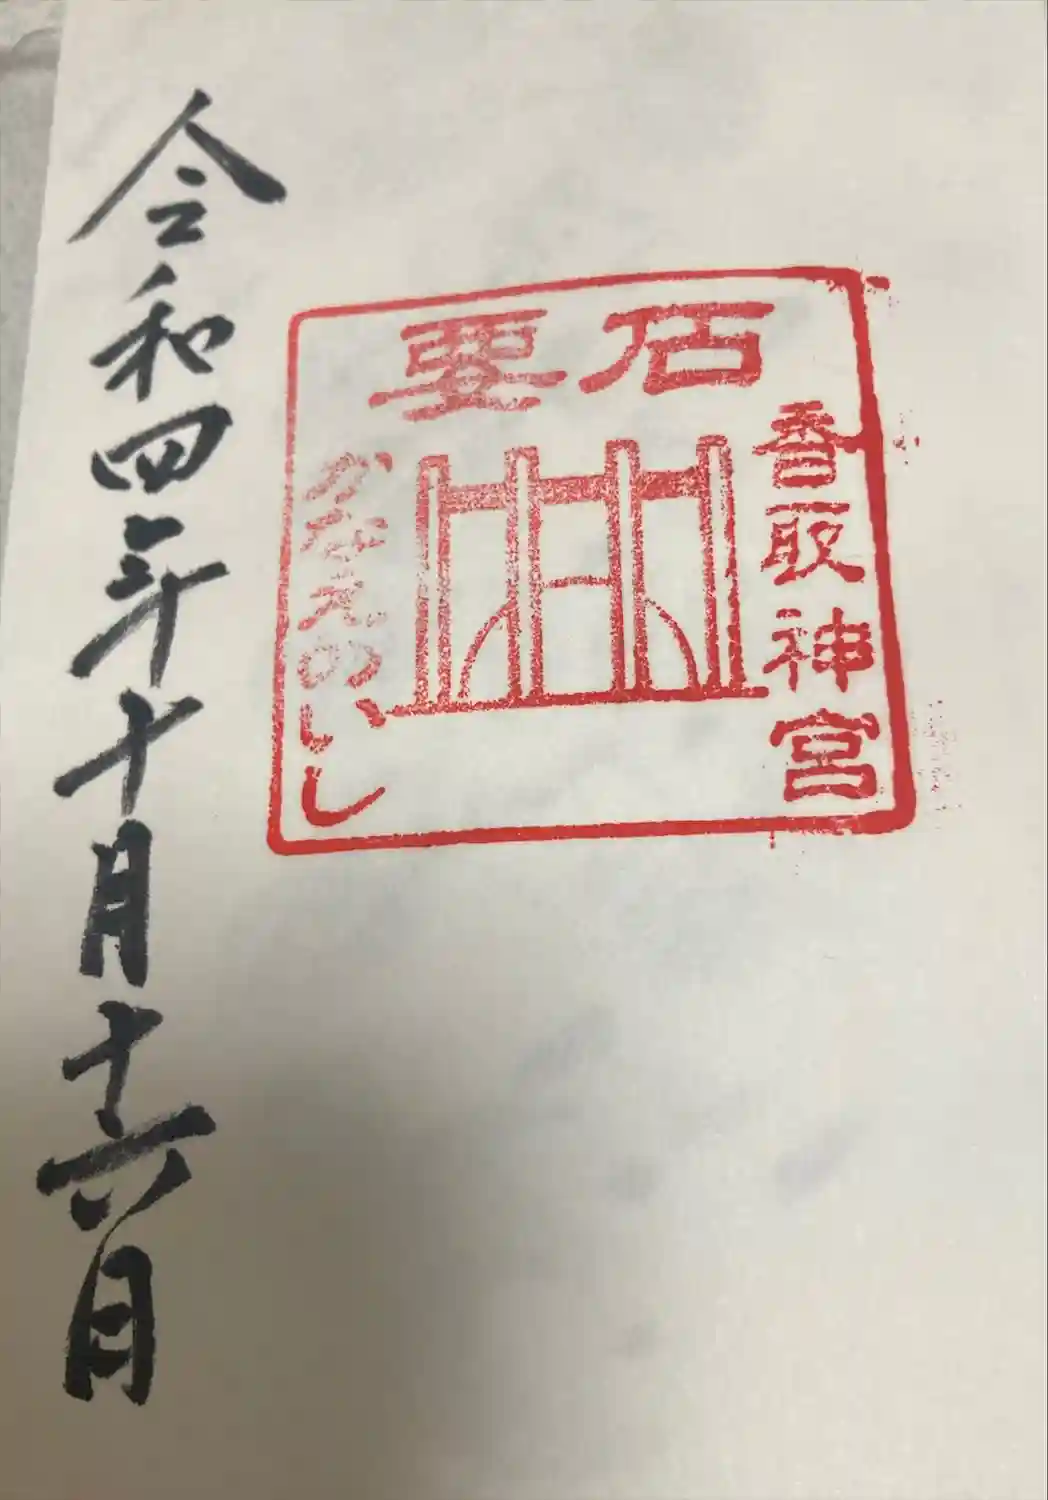 要石
香取神宮
かなえのいし
令和四年十月十六日